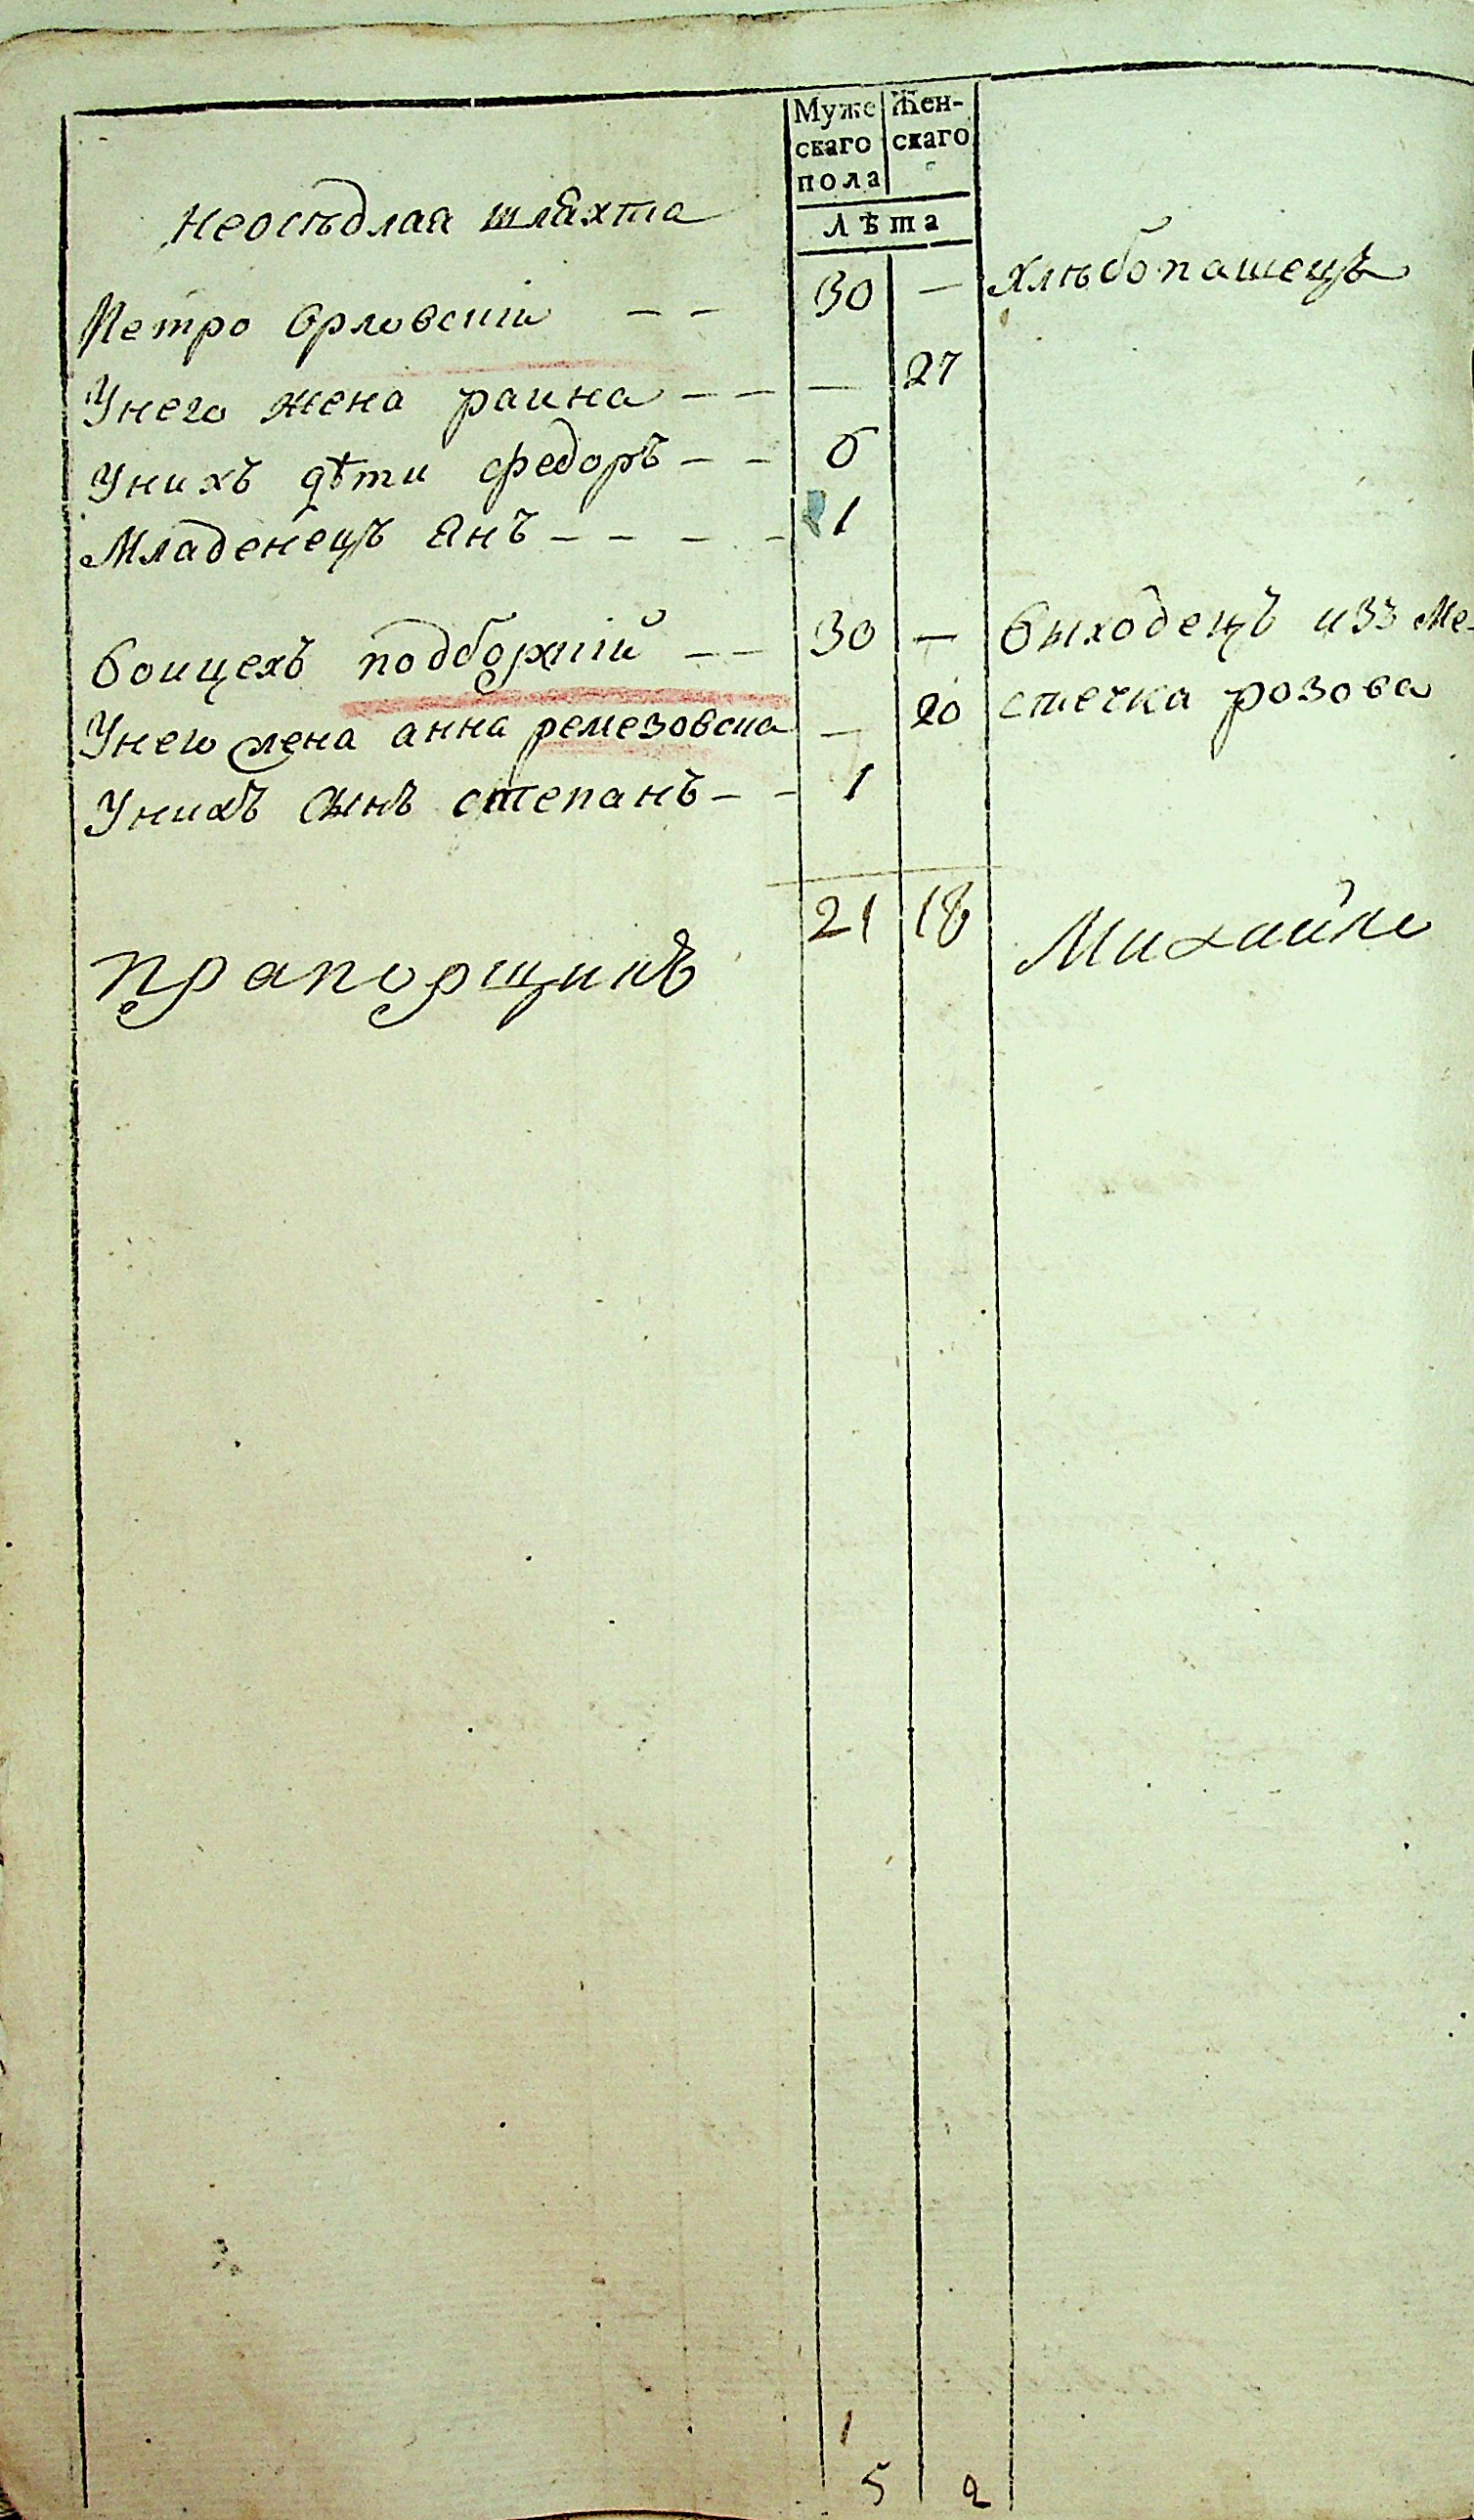 Муже Жен-
скаго скаго
пола
Лѣта
неосѣдлая шляхта
Петро Орловскiи — — 30 — хлѣбопашецъ
Унего жена раина — — — 27
Унихъ дѣти федоръ — — 6
Младенецъ Янъ — — — — 1
Воицехъ подборскiй — — 30 — Выходецъ изъ Ме-
Унего жена анна ремезовска — 20 стечка розова
Унихъ сынъ степанъ — — 1
21 18
прапорщикъ Михайло
1
5 2